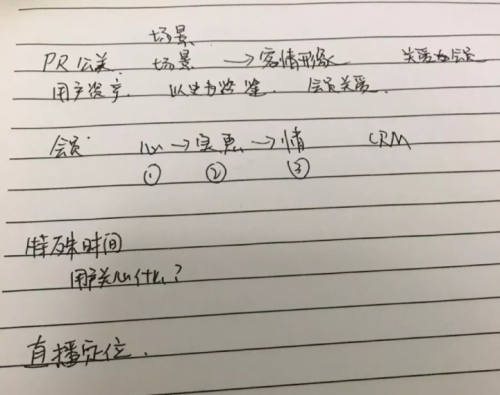 场景
PR公关 场景 → 客情形象 关爱
用户资产 以 为 会员关爱
会员 心 → 实惠 → 情 CRM
① ② ③
特殊时间
用户关心什么?
直播定位.